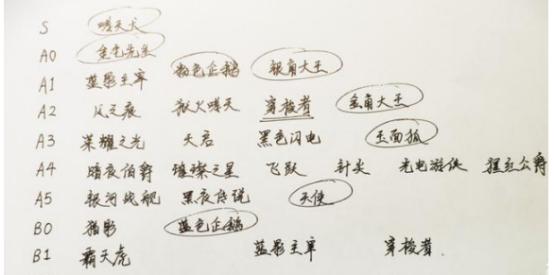 S 啸天犬
A0 金色先生
A1 蓝影主宰 粉色企鹅 银角大王
A2 火之痕 狱火啸天 穿梭者 金角大王
A3 荣耀之光 天启 黑色闪电 玉面狐
A4 暗夜伯爵 璀璨之星 飞跃 针尖 光电游侠 猩红公爵
A5 银河战舰 黑夜传说 天使
B0 猎影 蓝色企鹅
B1 霸天虎 蓝影主宰 穿梭者